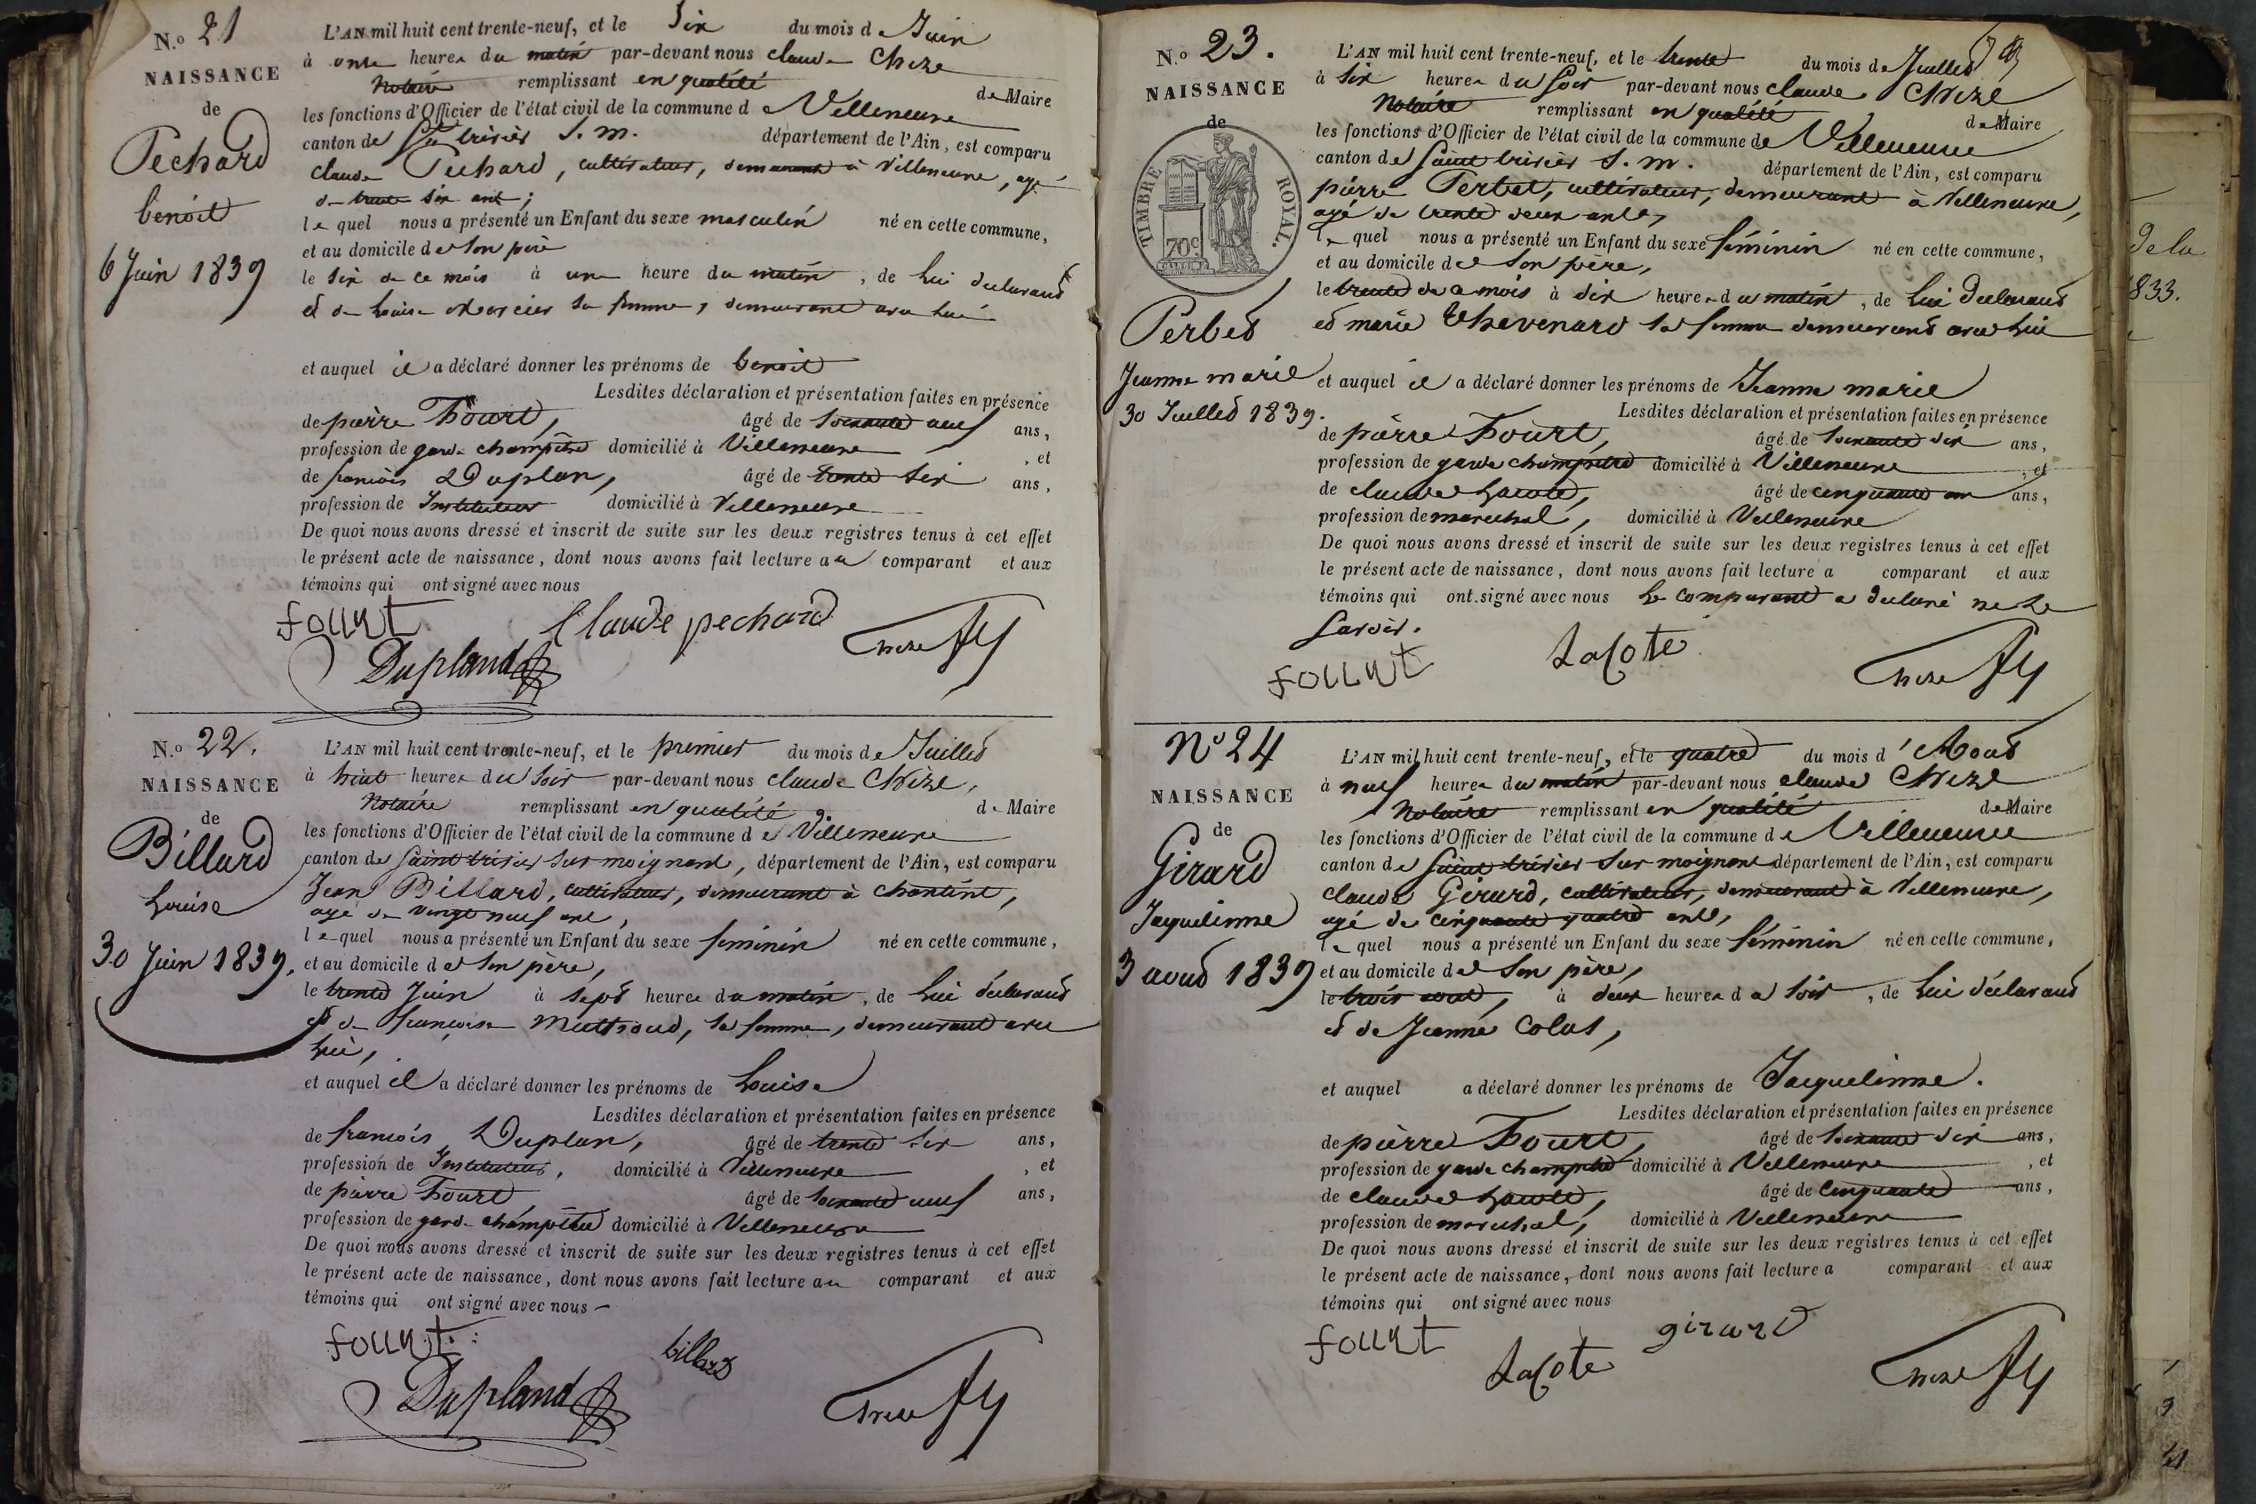 N.o 21
NAISSANCE
de
Pechard
benoit
6 Juin 1839
L'AN mil huit cent trente-neuf, et le Six du mois de Juin
à onze heures du matin par-devant nous claude Chize
Notaire remplissant en qualité de Maire
les fonctions d'Officier de l'état civil de la commune de Villeneuve
canton de St trivier S. m. département de l'Ain, est comparu
claude Pechard, cultivateur, demeurant à Villeneuve, agé
de trente six ans;
lequel nous a présenté un Enfant du sexe masculin né en cette commune,
et au domicile de Son père
le Six de ce mois à une heure du matin, de Lui déclarant
et de Louise Mercier Sa femme, demeurant avec Lui
et auquel il a déclaré donner les prénoms de benoit
Lesdites déclaration et présentation faites en présence
de pierre Fourt, âgé de Soixante neuf ans,
profession de garde champêtre domicilié à Villeneuve, et
de francois Duplan, âgé de trente Six ans,
profession de Instituteur domicilié à Villeneuve
De quoi nous avons dressé et inscrit de suite sur les deux registres tenus à cet effet
le présent acte de naissance, dont nous avons fait lecture au comparant et aux
témoins qui ont signé avec nous
Claude pechard
Dupland
Chize
N.o 22.
NAISSANCE
de
Billard
Louise
30 Juin 1839.
L'AN mil huit cent trente-neuf, et le premier du mois de Juillet
à huit heures du Soir par-devant nous claude Chize,
Notaire remplissant en qualité de Maire
les fonctions d'Officier de l'état civil de la commune de Villeneuve
canton de Saint trivier Sur moignand, département de l'Ain, est comparu
Jean Billard, cultivateur, demeurant à Chantint,
agé de vingt neuf ans,
lequel nous a présenté un Enfant du sexe feminin né en cette commune,
et au domicile de Son père,
le trente Juin à Sept heures du matin, de Lui déclarant
et de francoise Sa femme, demeurant avec
Lui,
et auquel il a déclaré donner les prénoms de Louise
Lesdites déclaration et présentation faites en présence
de francois Duplan, âgé de trente Six ans,
profession de Instituteur, domicilié à Villeneuve, et
de pierre Fourt âgé de Soixante neuf ans,
profession de garde champêtre domicilié à Villeneuve
De quoi nous avons dressé et inscrit de suite sur les deux registres tenus à cet effet
le présent acte de naissance, dont nous avons fait lecture au comparant et aux
témoins qui ont signé avec nous
billard
Dupland
Chize
N.o 23.
NAISSANCE
de
TIMBRE ROYAL.
70c
Perbet
Jeanne marie
30 Juillet 1839.
L'AN mil huit cent trente-neuf, et le trente du mois de Juillet
à Six heures du Soir par-devant nous claude Chize
Notaire remplissant en qualité de Maire
les fonctions d'Officier de l'état civil de la commune de Villeneuve
canton de Saint trivier S. m. département de l'Ain, est comparu
pierre Perbet, cultivateur, demeurant à Villeneuve,
agé de trente deux ans,
lequel nous a présenté un Enfant du sexe féminin né en cette commune,
et au domicile de Son père,
le trente de ce mois à dix heures du matin, de Lui déclarant
et marie Thevenard Sa femme demeurant avec Lui
et auquel il a déclaré donner les prénoms de Jeanne marie
Lesdites déclaration et présentation faites en présence
de pierre Fourt, âgé de Soixante dix ans,
profession de garde champêtre domicilié à Villeneuve, et
de claude Lacote, âgé de cinquante un ans,
profession de marechal, domicilié à Villeneuve
De quoi nous avons dressé et inscrit de suite sur les deux registres tenus à cet effet
le présent acte de naissance, dont nous avons fait lecture a comparant et aux
témoins qui ont signé avec nous Le comparant a declaré ne Le
Savoir.
LaCote
Chize
No 24
NAISSANCE
de
Girard
Jaquelinne
3 aout 1839
L'AN mil huit cent trente-neuf, et le quatre du mois d'Aout
à neuf heures du matin par-devant nous claude Chize
Notaire remplissant en qualité de Maire
les fonctions d'Officier de l'état civil de la commune de Villeneuve
canton de Saint trivier Sur moignans département de l'Ain, est comparu
claude Girard, cultivateur, demeurant à Villeneuve,
agé de cinquante quatre ans,
lequel nous a présenté un Enfant du sexe féminin né en cette commune,
et au domicile de Son père,
le trois aout, à deux heures du Soir, de Lui déclarant
et de Jeanne Colas,
et auquel a déclaré donner les prénoms de Jaquelinne.
Lesdites déclaration et présentation faites en présence
de pierre Fourt, âgé de Soixante dix ans,
profession de garde champêtre domicilié à Villeneuve, et
de claude Lacote, âgé de cinquante ans,
profession de marechal, domicilié à Villeneuve
De quoi nous avons dressé et inscrit de suite sur les deux registres tenus à cet effet
le présent acte de naissance, dont nous avons fait lecture a comparant et aux
témoins qui ont signé avec nous
girard
LaCote
Chize
de la
1833.